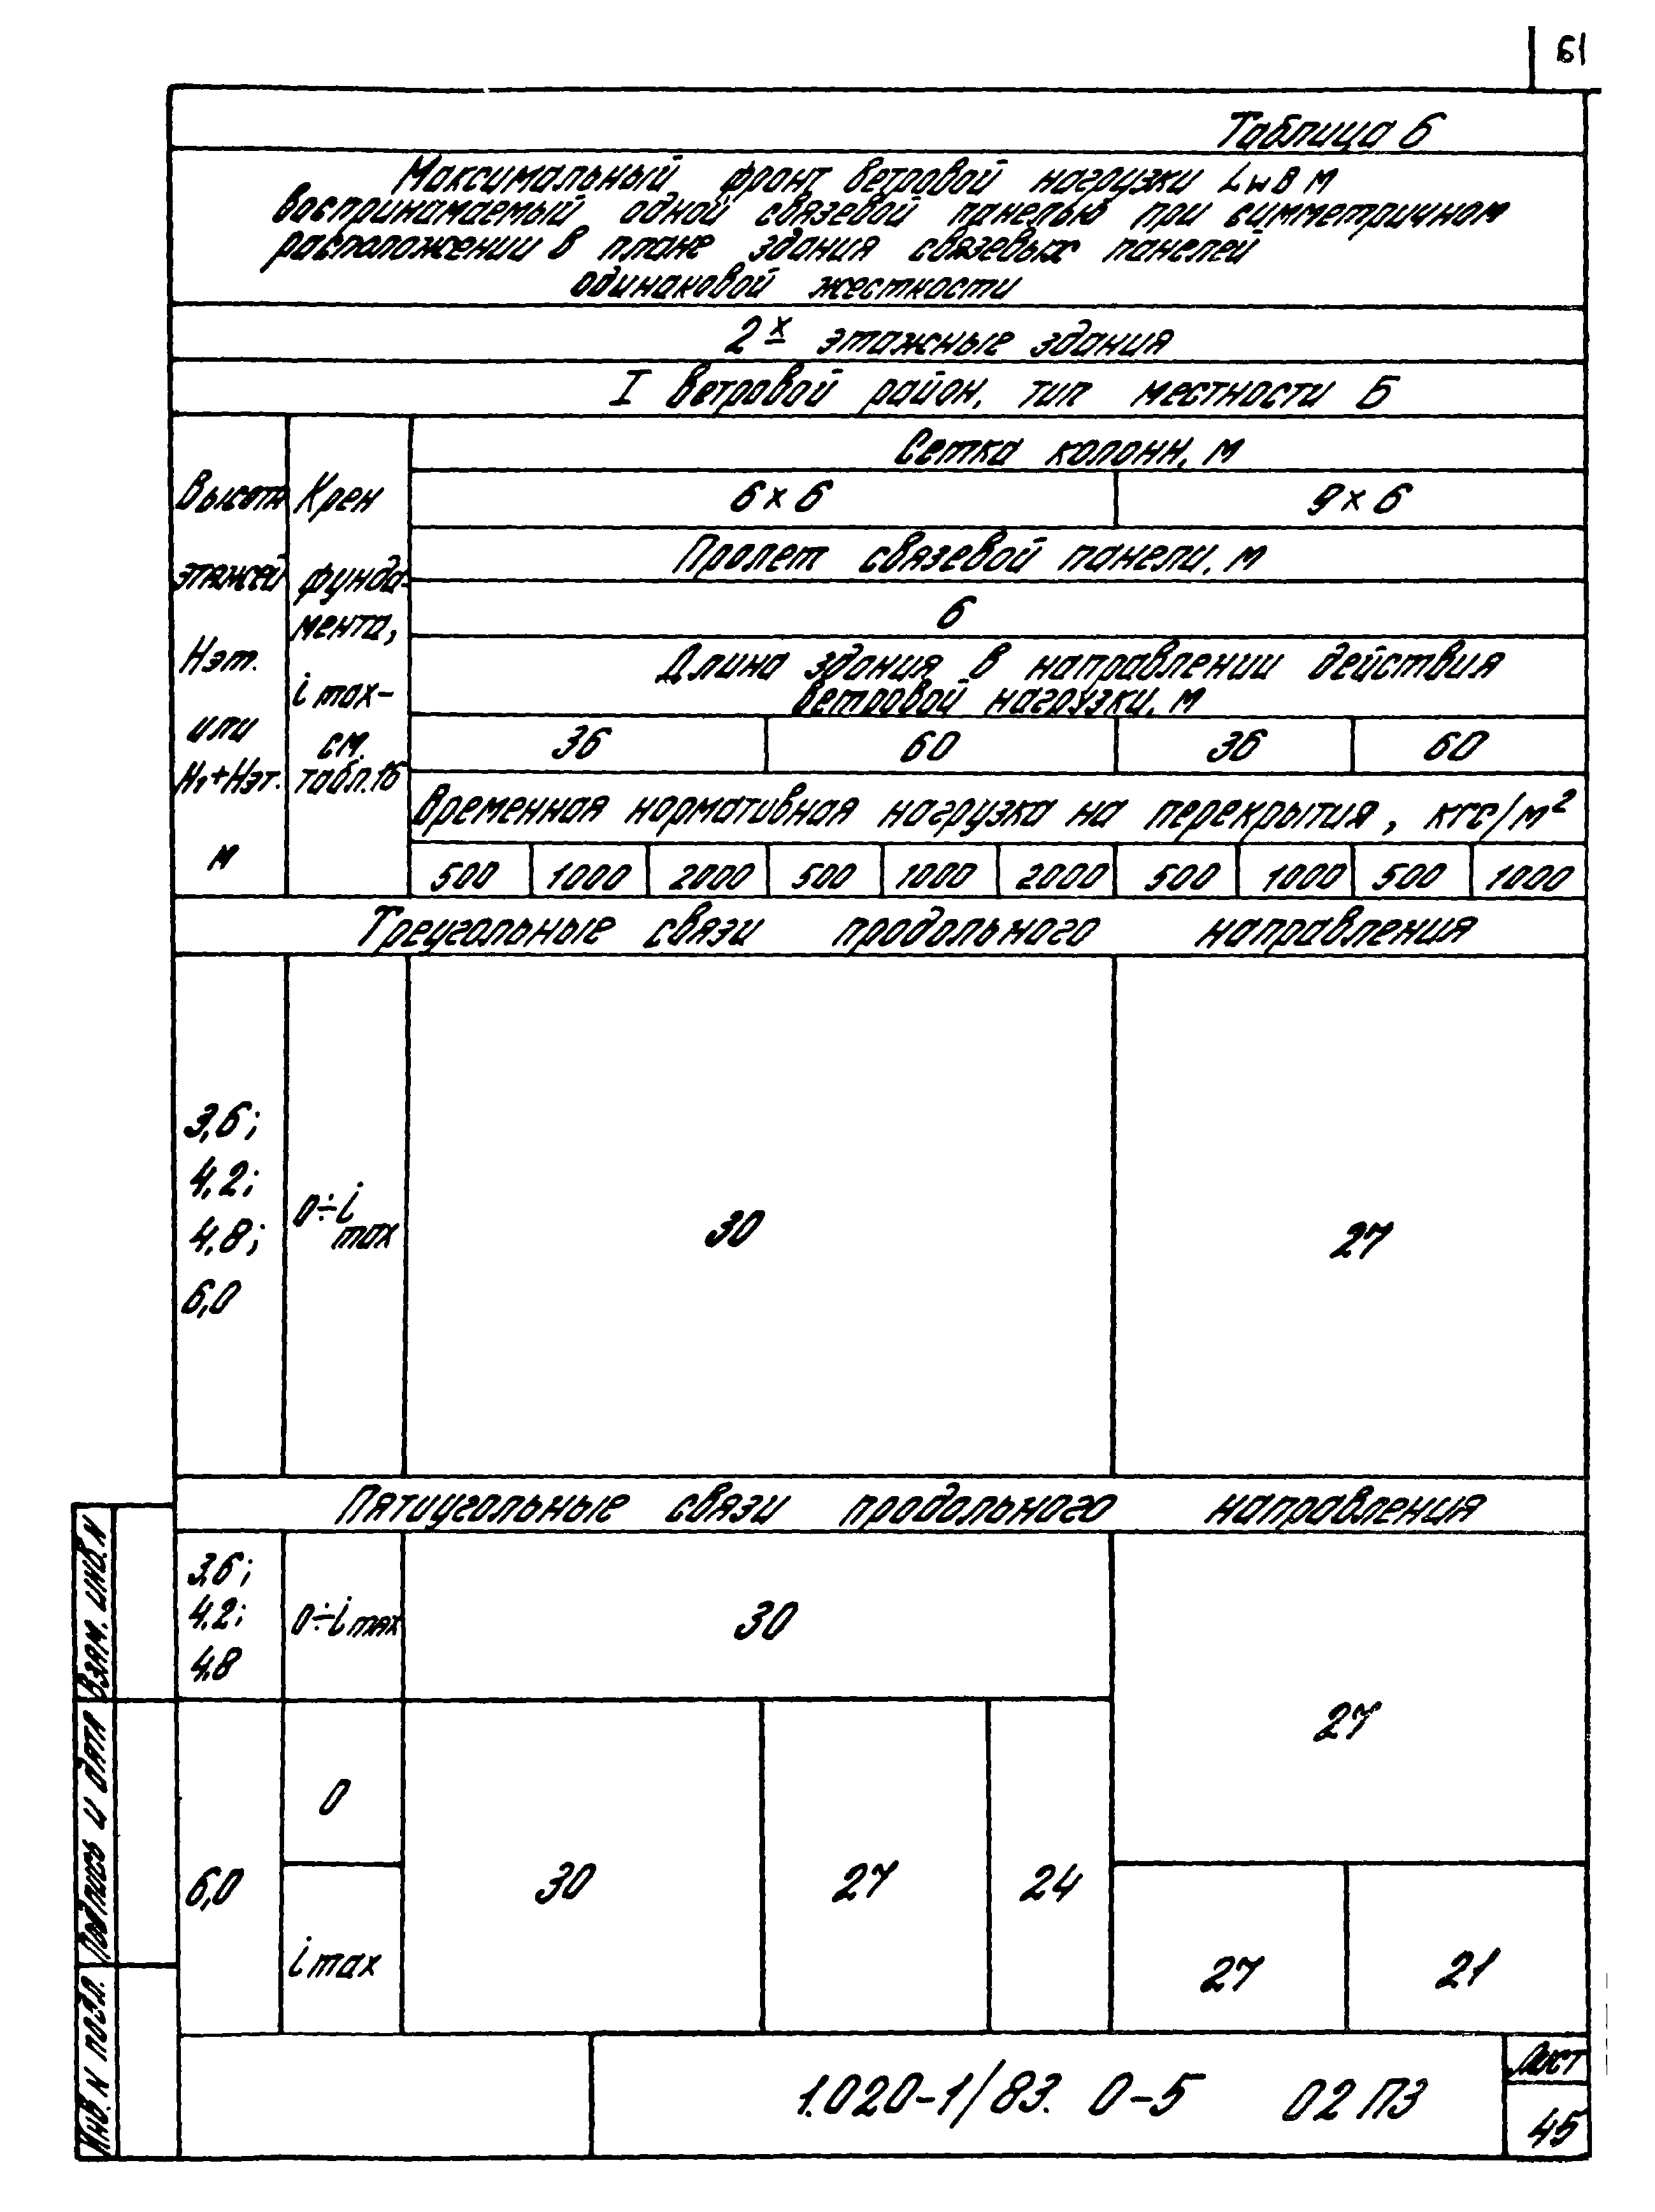 61
Таблица 6
Максимальный фронт ветровой нагрузки Lw в м
воспринимаемый одной связевой панелью при симметричном
расположении в плане здания связевых панелей
одинаковой жесткости
2х этажные здания
I ветровой район, тип местности Б
Высота
этажей
Нэт.
или
Н1+Нэт.
м
Крен
фунда-
мента,
i max-
см.
табл.16
Сетка колонн, м
6×6 9×6
Пролет связевой панели, м
6
Длина здания в направлении действия
ветровой нагрузки, м
36 60 36 60
Временная нормативная нагрузка на перекрытия, кгс/м²
500 1000 2000 500 1000 2000 500 1000 500 1000
Треугольные связи продольного направления
3,6;
4,2;
4,8;
6,0
0÷i max
30 27
Пятиугольные связи продольного направления
3,6;
4,2;
4,8
0÷i max
30
27
6,0
0
i max
30 27 24
27 21
Взам. инв. N
Подпись и дата
Инв. N подл.
1.020-1/83. 0-5 02 ПЗ
Лист
45